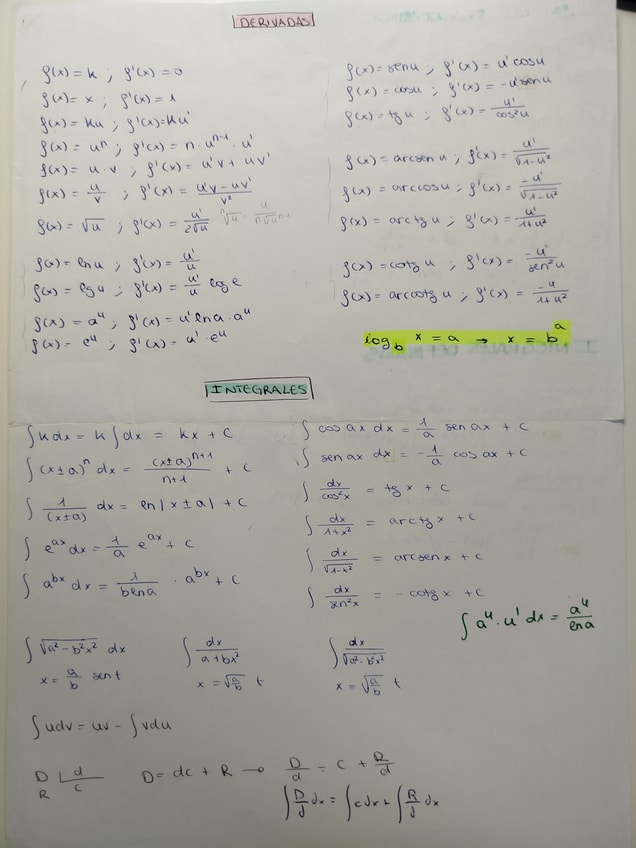 DERIVADAS
f(x) = k ; f'(x) = 0
f(x) = x ; f'(x) = 1
f(x) = ku ; f'(x) = ku'
f(x) = uⁿ ; f'(x) = n · uⁿ⁻¹ · u'
f(x) = u · v ; f'(x) = u'v + uv'
f(x) = u/v ; f'(x) = (u'v - uv')/v²
f(x) = √u ; f'(x) = u'/(2√u) ⁿ√u = u/(n ⁿ√uⁿ⁻¹)
f(x) = ln u ; f'(x) = u'/u
f(x) = lg u ; f'(x) = u'/u log e
f(x) = aᵘ ; f'(x) = u' ln a · aᵘ
f(x) = eᵘ ; f'(x) = u' · eᵘ
f(x) = sen u ; f'(x) = u' cos u
f(x) = cos u ; f'(x) = -u' sen u
f(x) = tg u ; f'(x) = u'/cos² u
f(x) = arcsen u ; f'(x) = u'/√(1-u²)
f(x) = arccos u ; f'(x) = -u'/√(1-u²)
f(x) = arctg u ; f'(x) = u'/(1+u²)
f(x) = cotg u ; f'(x) = -u'/sen² u
f(x) = arccotg u ; f'(x) = -u/(1+u²)
log_b x = a → x = bᵃ
INTEGRALES
∫ k dx = k ∫ dx = kx + C
∫ (x±a)ⁿ dx = (x±a)ⁿ⁺¹/(n+1) + C
∫ 1/(x±a) dx = ln |x±a| + C
∫ eᵃˣ dx = 1/a eᵃˣ + C
∫ aᵇˣ dx = 1/(b ln a) · aᵇˣ + C
∫ cos ax dx = 1/a sen ax + C
∫ sen ax dx = -1/a cos ax + C
∫ dx/cos² x = tg x + C
∫ dx/(1+x²) = arctg x + C
∫ dx/√(1-x²) = arcsen x + C
∫ dx/sen² x = - cotg x + C
∫ aᵘ · u' dx = aᵘ/ln a
∫ √(a² - b²x²) dx
x = a/b sen t
∫ dx/(a + bx²)
x = √(a/b) t
∫ dx/√(a² - b²x²)
x = √(a/b) t
∫ u dv = uv - ∫ v du
D | d
R c
D = dc + R → D/d = C + R/d
∫ D/d dx = ∫ c dx + ∫ R/d dx